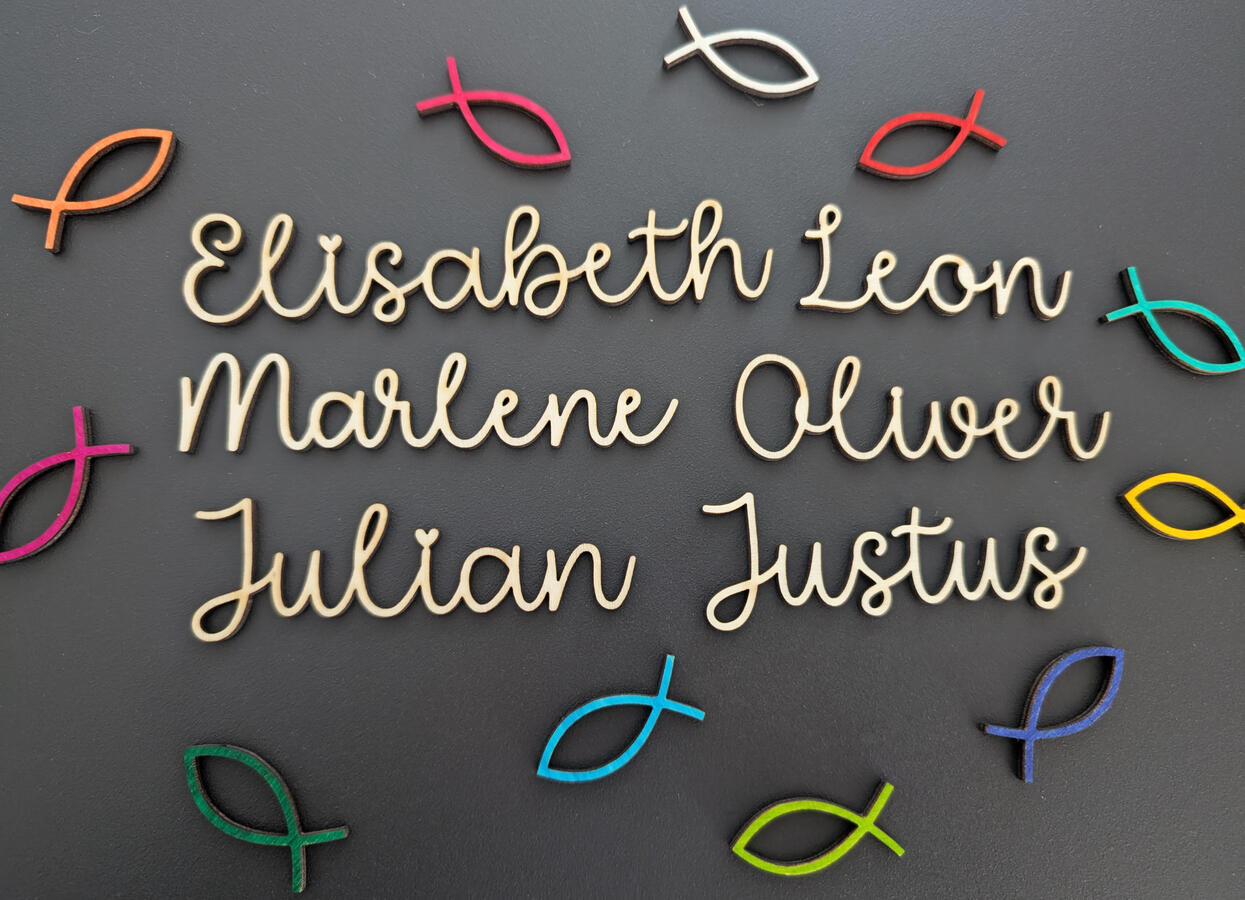 Elisabeth Leon
Marlene Oliver
Julian Justus